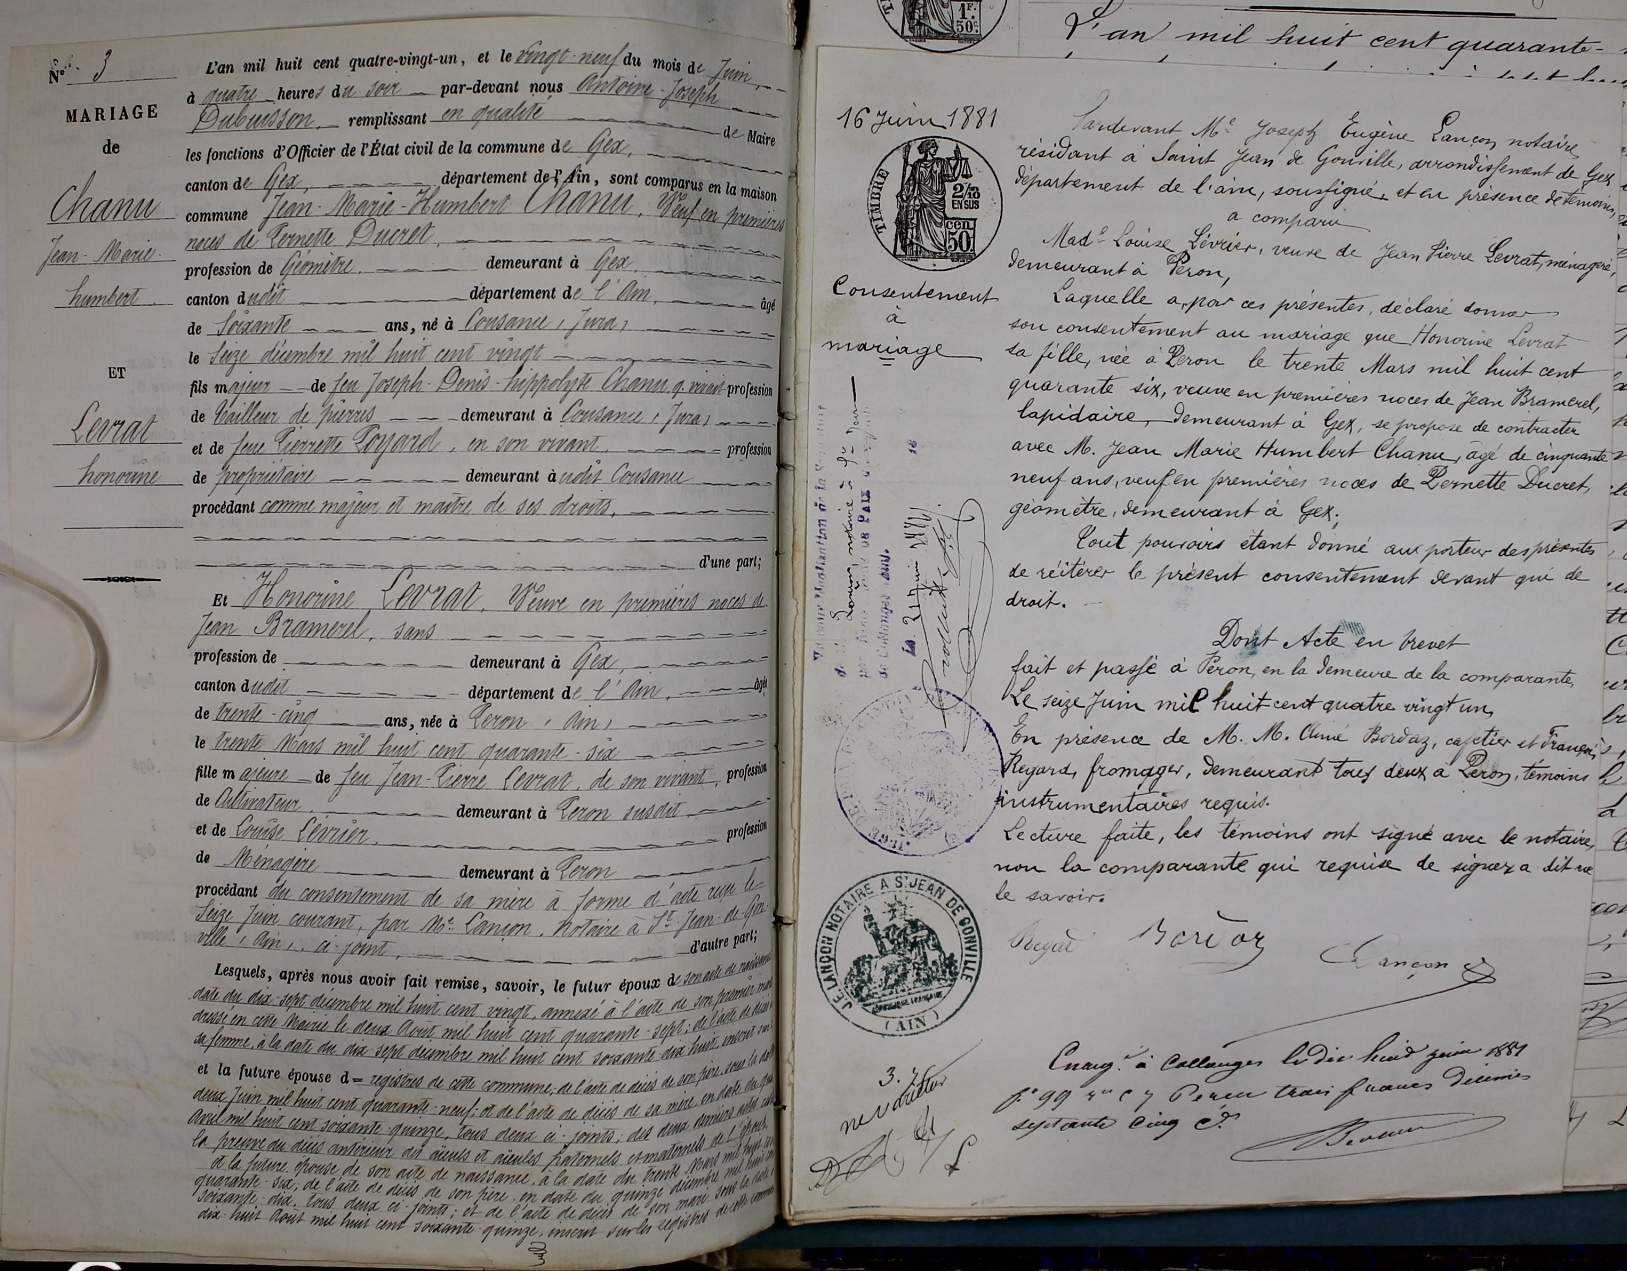 N° 3
MARIAGE
de
Chanu
Jean-Marie-
humbert
ET
Levrat
honorine
L'an mil huit cent quatre-vingt-un, et le vingt-neuf du mois de Juin
à quatre heures du soir par-devant nous Antoine-Joseph
Dubuisson remplissant en qualité de Maire
les fonctions d'Officier de l'État civil de la commune de Gex,
canton de Gex, département de l'Ain, sont comparus en la maison
commune Jean-Marie-Humbert Chanu, Veuf en premières
noces de Pernette Ducret,
profession de Géomètre demeurant à Gex
canton dudit département de l'Ain, âgé
de Soixante ans, né à Cousance (Jura)
le Seize décembre mil huit cent vingt
fils majeur de feu Joseph-Denis-hippolyte Chanu, q. vivait profession
de tailleur de pierres demeurant à Cousance (Jura)
et de feue Pierrette Poyard, en son vivant profession
de propriétaire demeurant à udit Cousance
procédant comme majeur et maître de ses droits,
d'une part;
Et Honorine Levrat, Veuve en premières noces de
Jean Bramerel, sans
profession de demeurant à Gex,
canton dudit département de l'Ain, âgée
de trente-cinq ans, née à Peron (Ain)
le trente Mars mil huit cent quarante-six
fille majeure de feu Jean-Pierre Levrat, de son vivant, profession
de Cultivateur demeurant à Peron susdit
et de Louise Lévrier, profession
de Ménagère demeurant à Peron
procédant du consentement de sa mère à forme d'acte reçu le
Seize Juin courant, par Me Lançon, notaire à St Jean-de-Gon-
ville (Ain), ci-joint, d'autre part;
Lesquels, après nous avoir fait remise, savoir, le futur époux de son acte de naissance
date du dix-sept décembre mil huit cent vingt, annexé à l'acte de son premier
dressé en cette Mairie le deux Août mil huit cent quarante-sept; de l'acte de décès
sa femme, à la date du dix-sept décembre mil huit cent soixante dix huit, inscrit sur
et la future épouse d= registres de cette commune; de l'acte de décès de son père, sous la date
deux Juin mil huit cent quarante-neuf; et de l'acte de décès de sa mère, en date du
Avril mil huit cent soixante-quinze, tous deux ci-joints; des deux derniers actes
la preuve du décès antérieur des aïeuls et aïeules paternels et maternels de l'époux,
et la future épouse de son acte de naissance, à la date du trente Mars mil huit cent
quarante-six; de l'acte de décès de son père, en date du quinze décembre mil huit cent
soixante-dix, tous deux ci-joints; et de l'acte de décès de son mari sous la date
dix-huit Août mil huit cent soixante-quinze, inscrit sur les registres de cette commune
1F.
50c
L'an mil huit cent quarante-
16 Juin 1881
TIMBRE
2/10
EN SUS
50
cen.
Consentement
à
mariage
Pardevant Me Joseph Eugène Lançon, notaire,
résidant à Saint Jean de Gonville, arrondissement de Gex,
département de l'ain, soussigné, et en présence de témoins,
a comparu
Made Louise Lévrier, veuve de Jean Pierre Levrat, ménagère,
demeurant à Péron,
Laquelle a, par ces présentes, déclaré donner
son consentement au mariage que Honorine Levrat
sa fille, née à Peron le trente Mars mil huit cent
quarante six, veuve en premières noces de Jean Bramerel,
lapidaire, demeurant à Gex, se propose de contracter
avec M. Jean Marie Humbert Chanu, âgé de cinquante
neuf ans, veuf en premières noces de Pernette Ducret,
géomètre, demeurant à Gex;
Tout pouvoirs étant donné aux porteur des présentes
de réitérer le présent consentement devant qui de
droit.
Dont Acte en brevet
fait et passé à Péron, en la demeure de la comparante,
Le seize Juin mil huit cent quatre vingt un,
En présence de M. M. Aimé Bordaz, cafetier et François
Regard, fromager, demeurant tous deux à Peron, témoins
instrumentaires requis.
Lecture faite, les témoins ont signé avec le notaire,
non la comparante qui requise de signer a dit ne
le savoir.
Regad Bordaz Lançon
J.E. LANÇON NOTAIRE A ST JEAN DE GONVILLE
(AIN)
Enreg. à Collonges le dix huit juin 1881
fo 99 Ro C 7 Perçu trois francs décimes
septante cinq cs